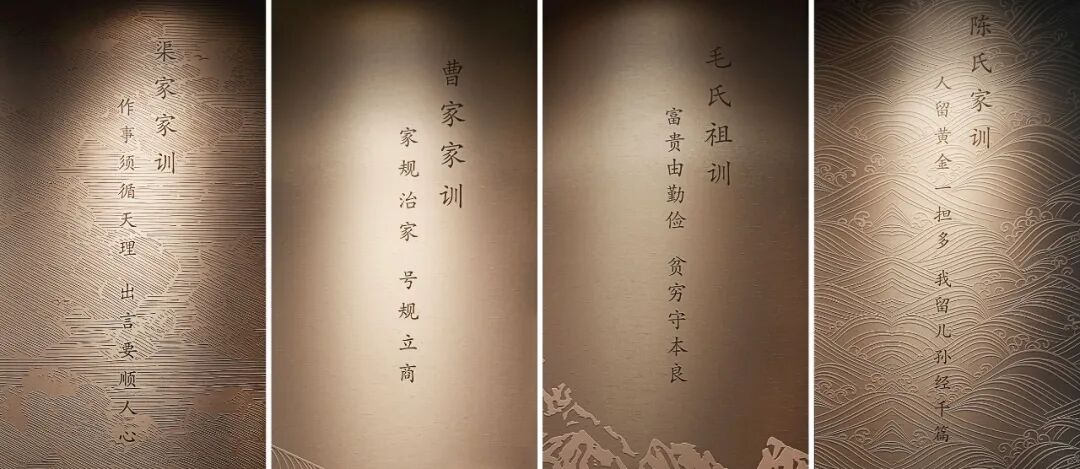 渠家家训
作事须循天理 出言要顺人心
曹家家训
家规治家 号规立商
毛氏祖训
富贵由勤俭 贫穷守本良
陈氏家训
人留黄金一担多 我留儿孙经千篇